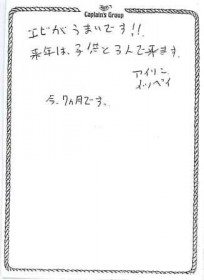 Captain's Group
エビがうまいです!!
来年は、子供と3人で来ます。
アイリーン
イッペイ
今、7ヵ月です。